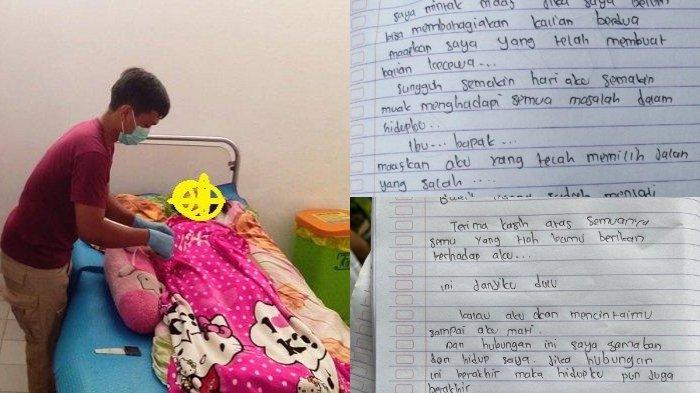 saya mintak maaf jika saya belum
bisa membahagiakan kalian berdua
maafkan saya yang telah membuat
kalian kecewa...
Sungguh semakin hari aku semakin
muak menghadapi semua masalah dalam
hidupku...
Ibu... bapak...
maafkan aku yang telah memilih jalan
yang salah ....
Terima kasih atas semuanya
semu yang tlah kamu berikan
terhadap aku...
ini janjiku dulu
kalau aku akan mencintaimu
sampai aku mati.
Dan hubungan ini saya samakan
dgn hidup saya. jika hubungan
ini berakhir maka hidupku pun juga
berakhir